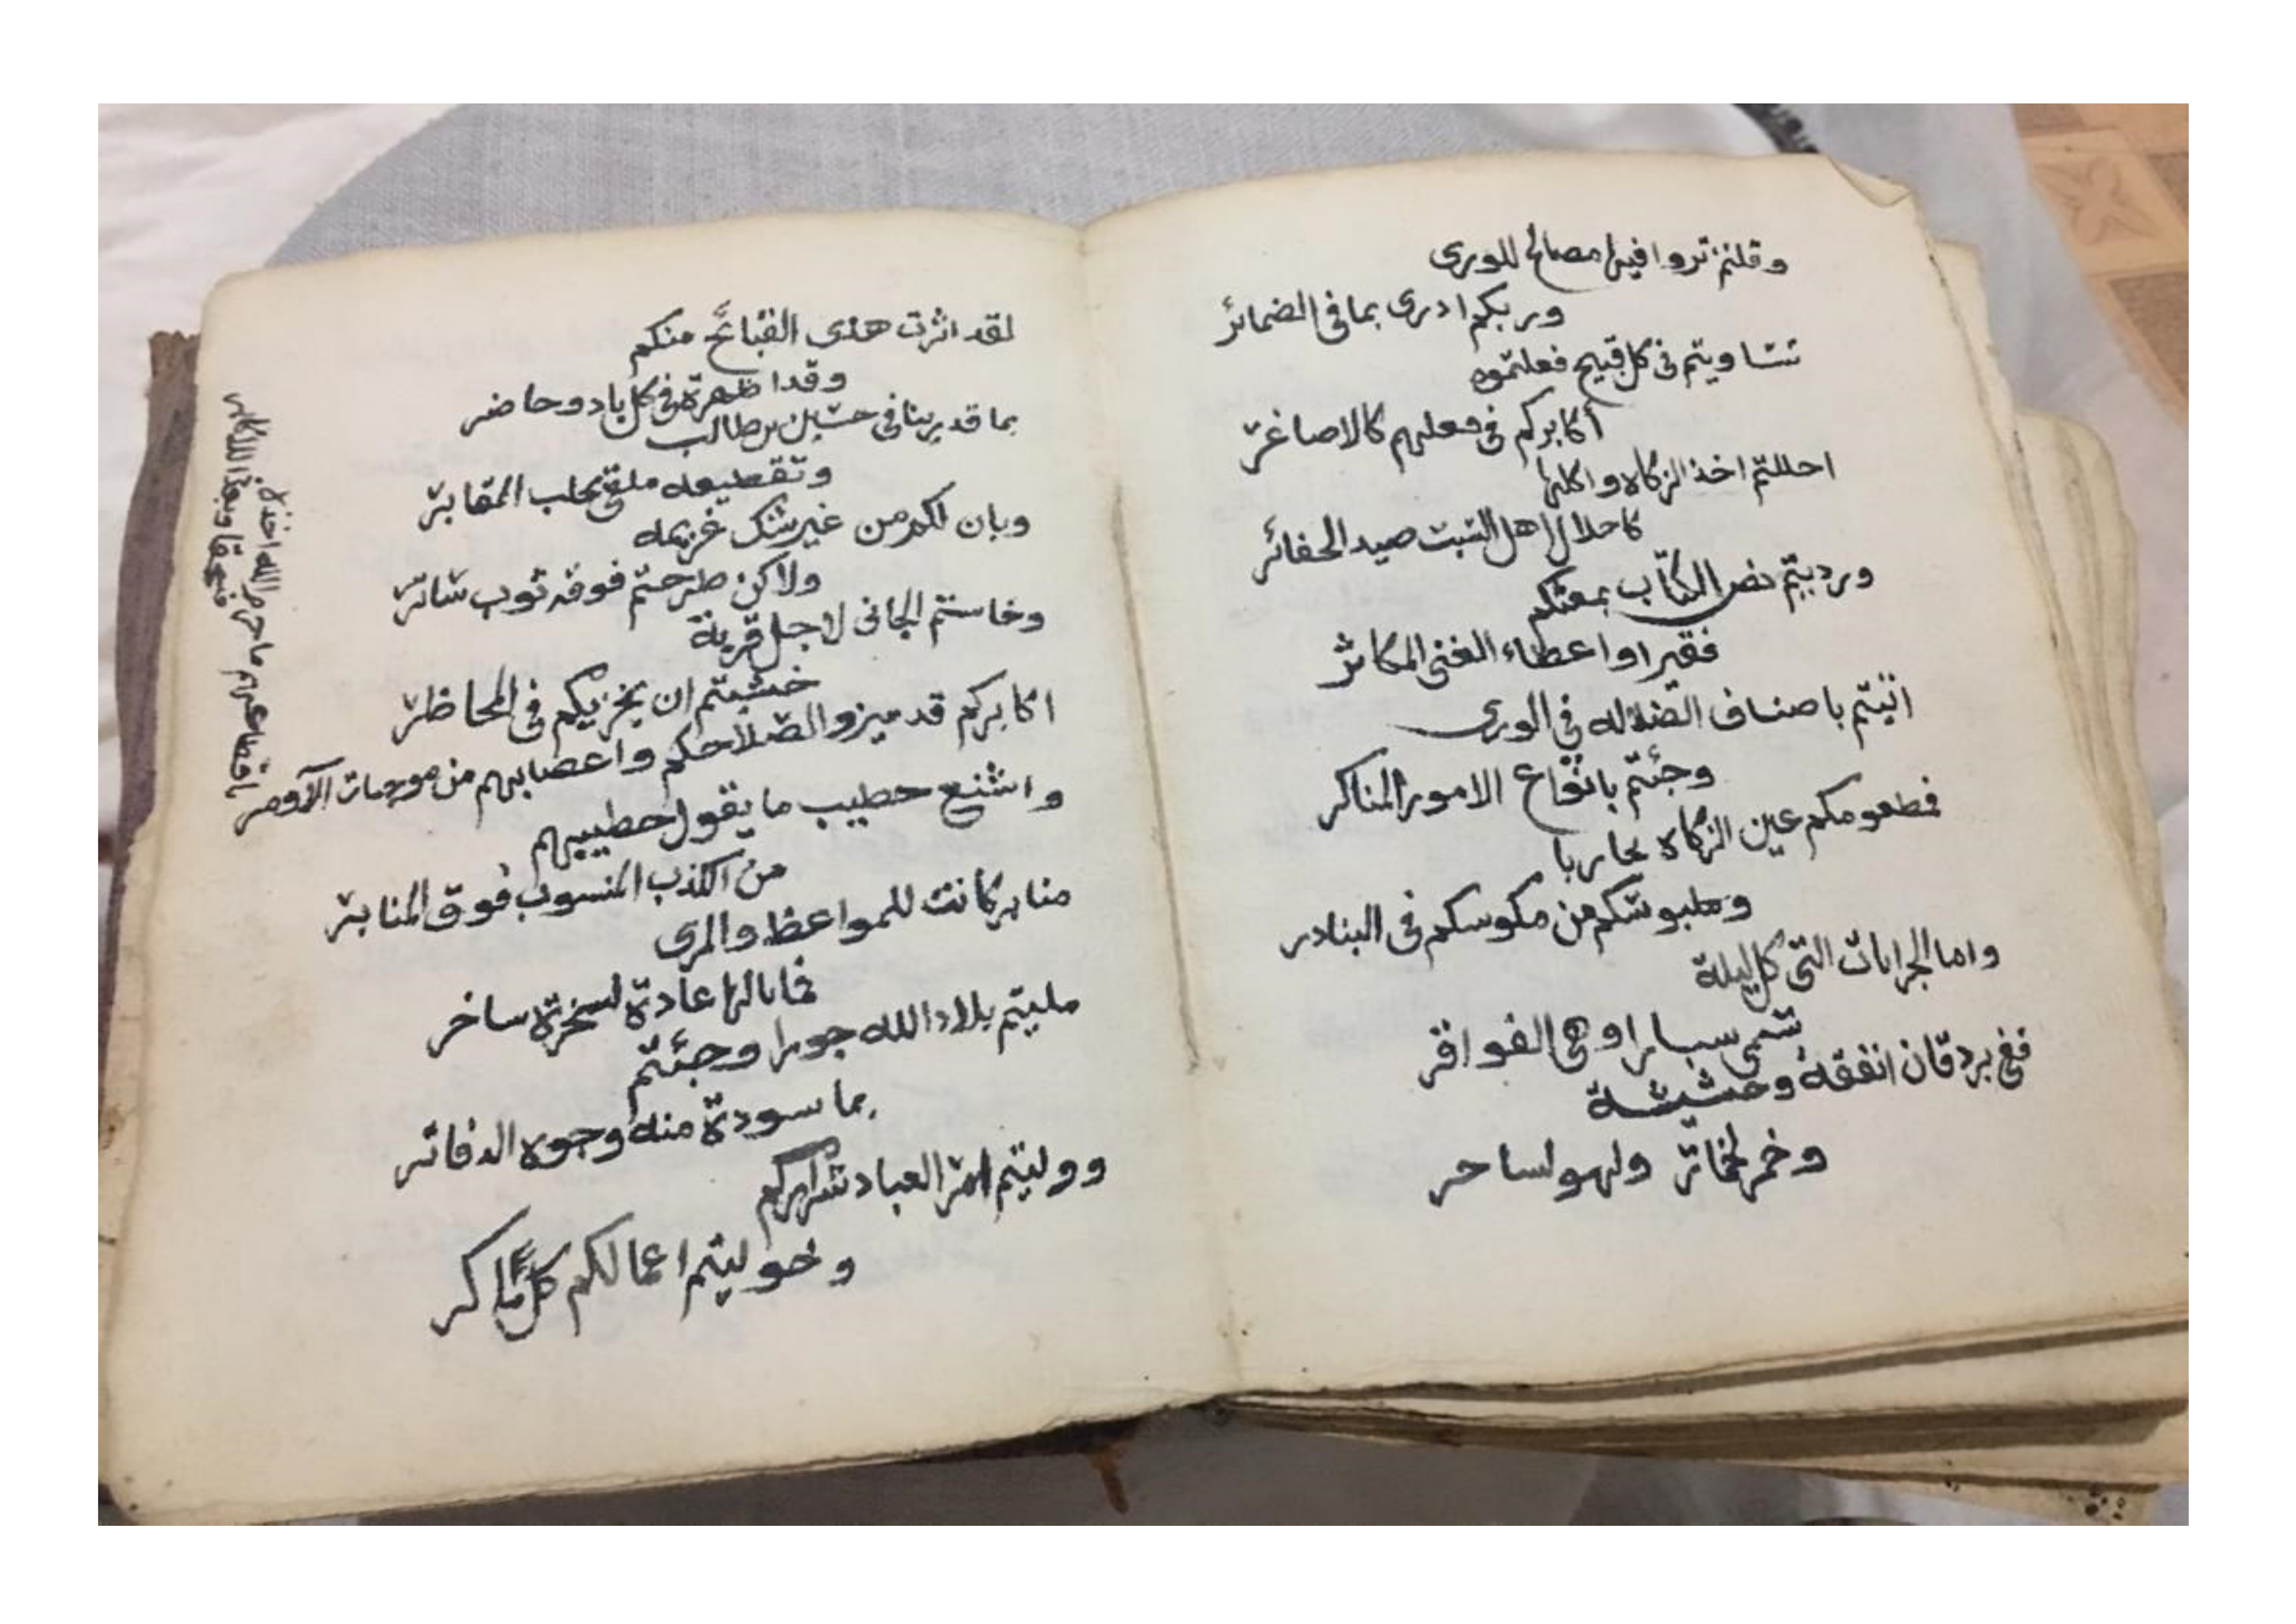 وقلتم تروا فيها مصالح للورى
وربكم ادرى بما في الضمائر
تساويتم في كل قبيح فعلتموه
أكابركم في فعلهم كالاصاغر
احللتم اخذ الزكاه واكلها
كاحلال اهل السبت صيد الحفائر
ورديتم نص الكتاب بمعتكم
فقيرا واعطاء الغني المكاثر
اتيتم باصناف الضلاله في الورى
وجئتم بانواع الامور المناكر
فمطعومكم عين الزكاة
وملبوسكم من مكوسكم في البنادر
واما الجرايات التي كل ليلة
تسمى سبارا وهي الفواقر
ففي بردقان انفقة وحشيشة
وخمر لخاتر ولهو لساحر
لقد اثرت هذى القبائح منكم
وقد اظهرة في كل باد وحاضر
بما قد في حسين بن طالب
وتقطيعه ملقى بجلب المقابر
وبان لكم من غير شك غريمه
ولاكن طرحتم فوقه ثوب ساتر
وخاستم الجاني لاجل قرية
خشيتم ان يخزيكم في المحاظر
اكابركم قد ميزو الصلاحكم واعصابهم من موجبات
واشنع حطيب ما يقول حطيبهم
من الكذب المنسوب فوق المنابر
منابر كانت للمواعظ والمرى
فما بالها عادة لسخرة ساخر
مليتم بلاد الله جورا وجئتم
بما سودة منه وجوه الدفاتر
ووليتم امر العباد شراركم
وخوليتم اعمالكم كل ماكر
ما حرم الله اخذه